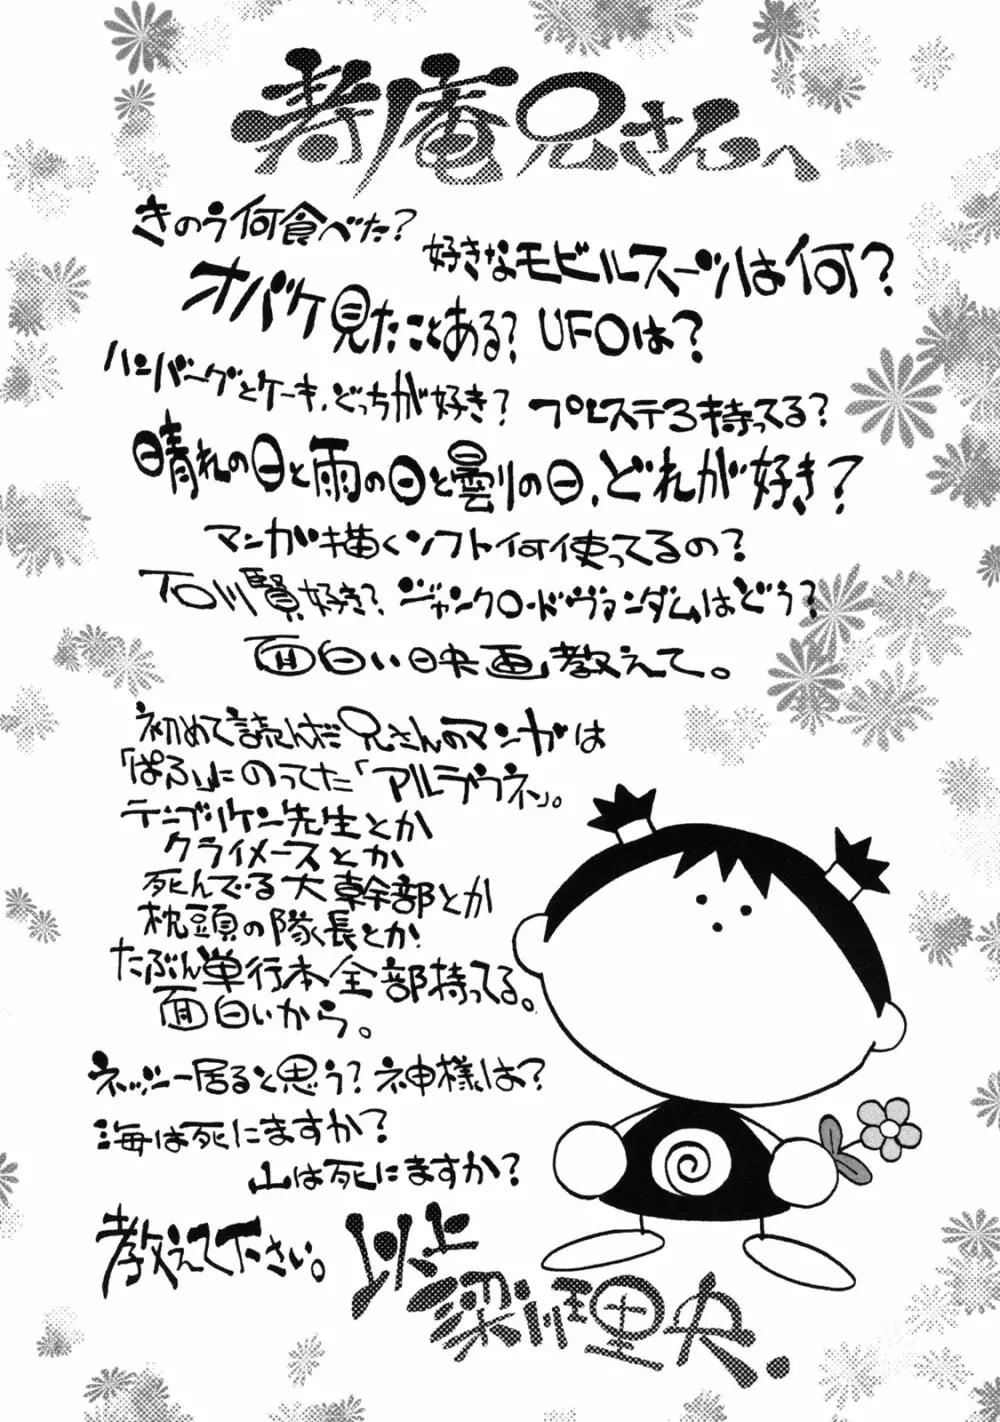 寿庵兄さんへ
きのう何食べた?
好きなモビルスーツは何?
オバケ見たことある? UFOは?
ハンバーグとケーキ、どっちが好き? プレステ3持ってる?
晴れの日と雨の日と曇りの日、どれが好き?
マンガ描くソフト何使ってるの?
石川賢好き? ジャンクロード・ヴァンダムはどう?
面白い映画教えて。
初めて読んだ兄さんのマンガは
「ぱふ」にのってた「アルラウネ」。
テンプリケン先生とか
クライメーズとか
死んでる大幹部とか
枕頭の隊長とか
たぶん単行本全部持ってる。
面白いから。
ネッシー居ると思う? 神様は?
海は死にますか?
山は死にますか?
教えて下さい。
以上
梁川理央.